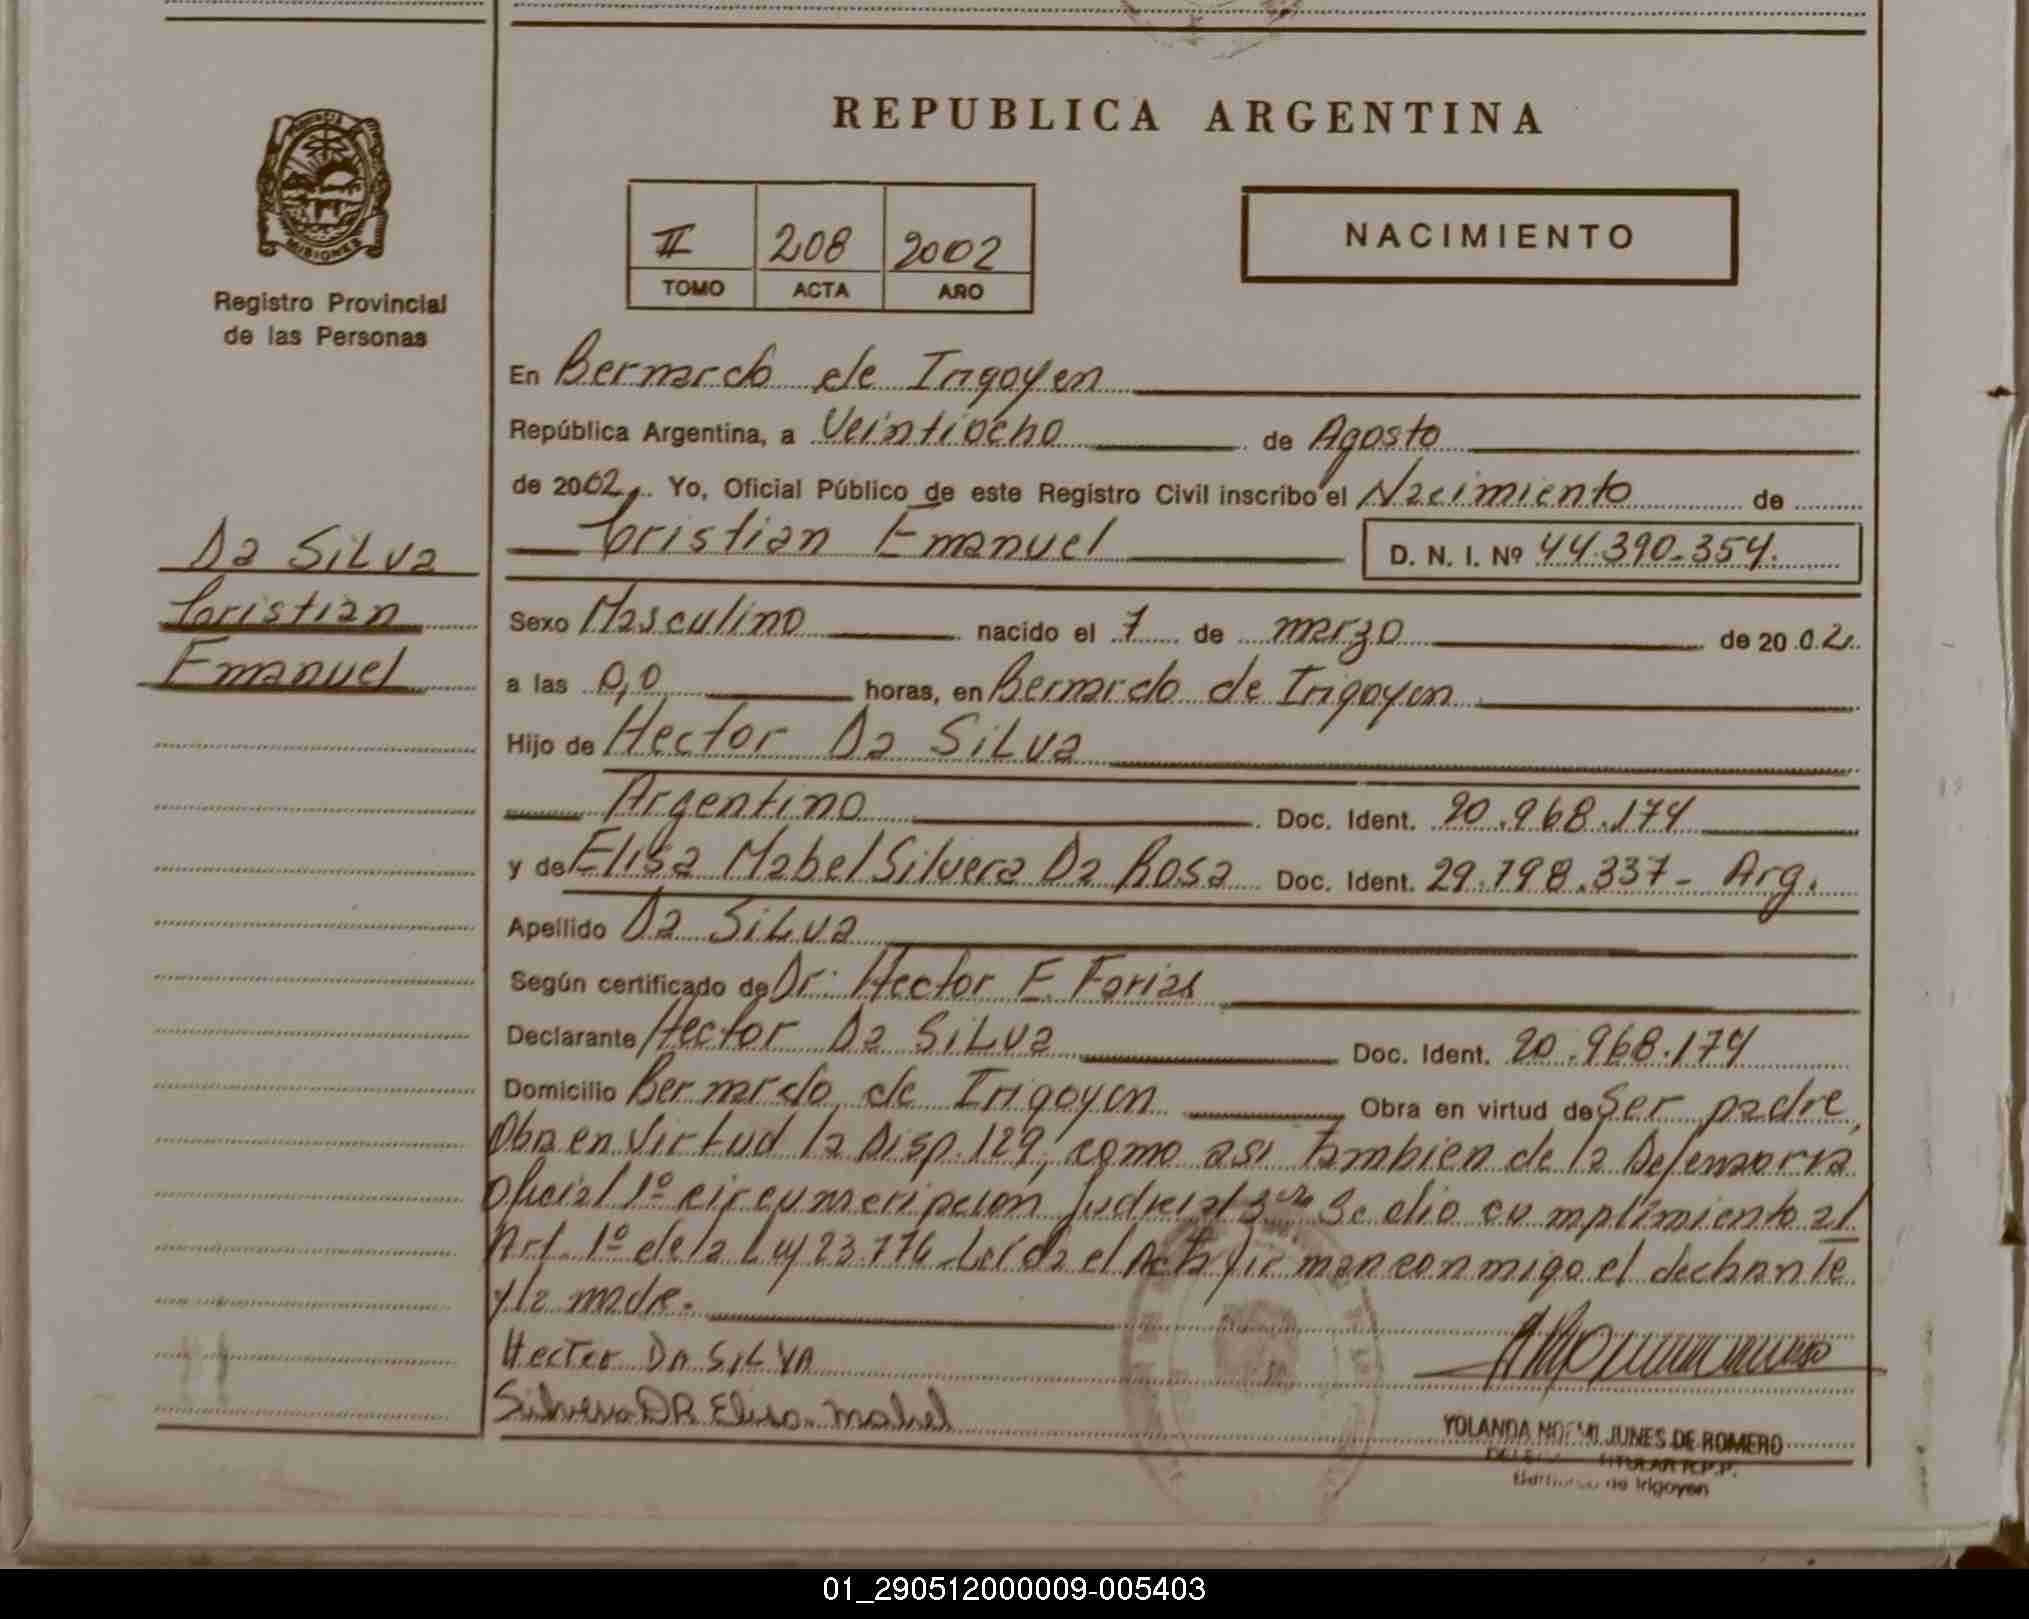 REPUBLICA ARGENTINA
PROVINCIA DE MISIONES
Registro Provincial
de las Personas
II 208 2002
TOMO ACTA AÑO
NACIMIENTO
Da Silva
Cristian
Emanuel
En Bernardo de Irigoyen
República Argentina, a Veintiocho de Agosto
de 2002. Yo, Oficial Público de este Registro Civil inscribo el Nacimiento de
Cristian Emanuel D. N. I. Nº 44.390.354.
Sexo Masculino nacido el 7 de marzo de 2002
a las 0,0 horas, en Bernardo de Irigoyen
Hijo de Hector Da Silva
Argentino Doc. Ident. 20.968.174
y de Elisa Mabel Silvera Da Rosa Doc. Ident. 29.798.337- Arg.
Apellido Da Silva
Según certificado de Dr: Hector E. Farias
Declarante Hector Da Silva Doc. Ident. 20.968.174
Domicilio Bernardo de Irigoyen Obra en virtud de Ser padre,
Obra en Virtud la Disp. 129, como asi Tambien de la Defensoria
Oficial 1º circunscripcion Judicial 3ra Se dio cumplimiento al
Art. 1º de la Ley 23.776 Leida el Acta firman conmigo el declarante
y la madre.
Hector Da SILVA
Silvera DA Elisa Mabel
YOLANDA NOEMI JUNES DE ROMERO
TITULAR R.P.P.
Bernardo de Irigoyen
01_290512000009-005403